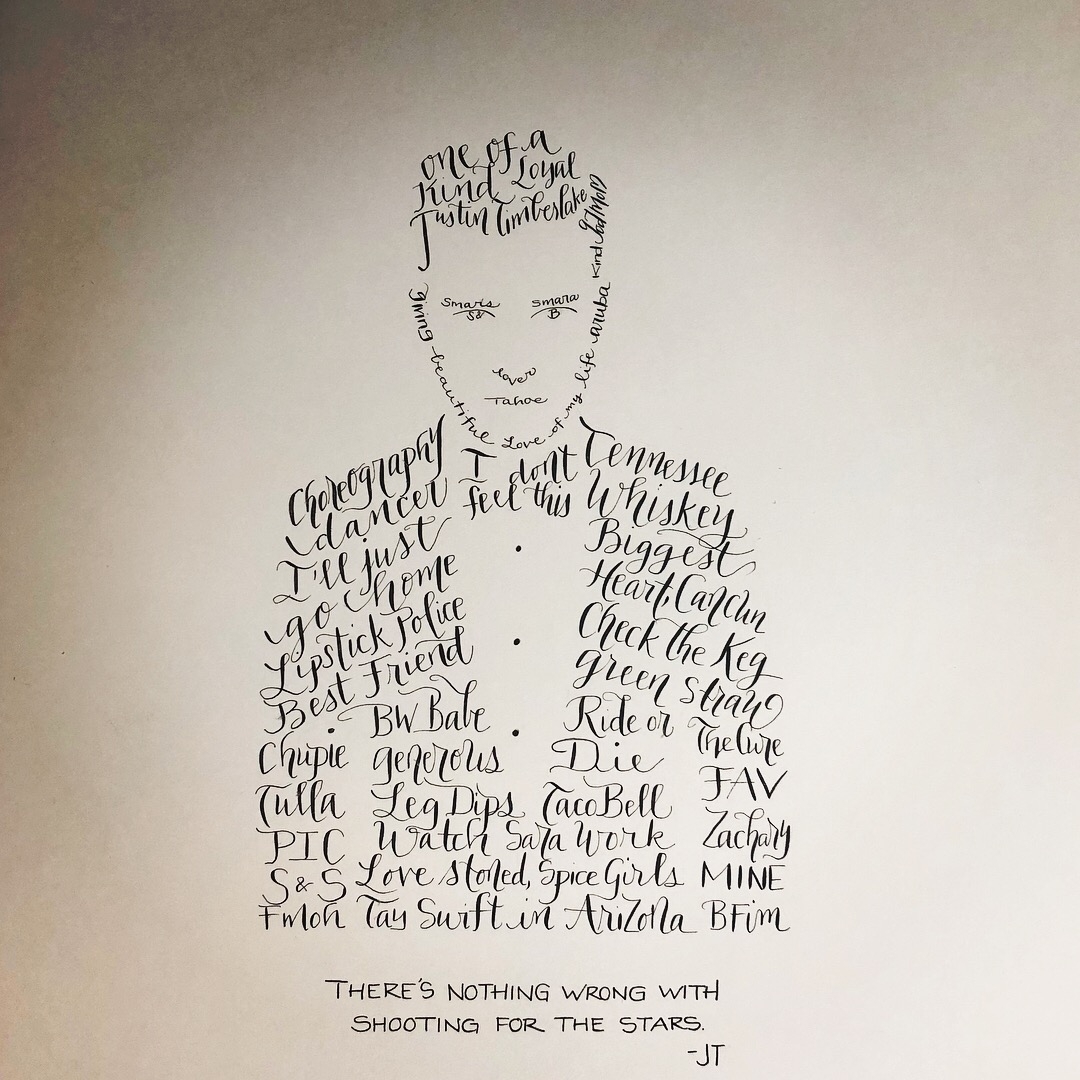 one of a
Kind Loyal
Justin Timberlake
Kind
giving beautiful Love of my life aruba
Smaris smara
S& B
lover
Tahoe
Choreography
dancer
I'll just
go home
Lipstick Police
Best Friend
I dont
feel this
Tennessee
Whiskey
Biggest
Heart, Cancun
Check the Keg
green straw
BW Babe Ride or The Cure
Chupie generous Die FAV
Tulla Leg Dips Taco Bell
PIC Watch Sara Work Zachary
S&S Love Stoned, Spice Girls MINE
Fmoh Tay Swift in Arizona BFim
THERE'S NOTHING WRONG WITH
SHOOTING FOR THE STARS.
-JT